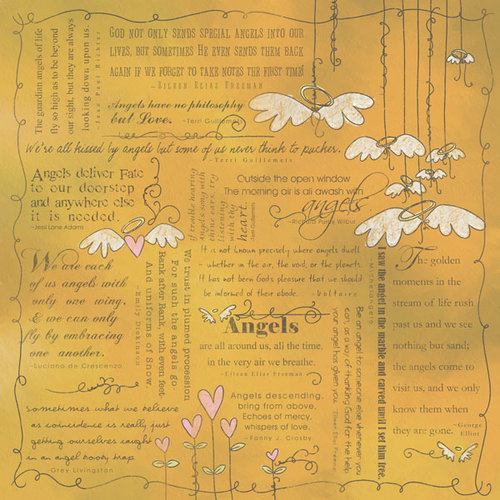 The guardian angels of life
fly so high as to be beyond
our sight, but they are always
looking down upon us.
Jean Paul Richter
God not only sends special angels into our
lives, but sometimes He even sends them back
again if we forget to take notes the first time!
~Eileen Elias Freeman
Angels have no philosophy
but Love. ~Terri Guillemets
We're all kissed by angels but some of us never think to pucker.
~Terri Guillemets
Angels deliver Fate
to our doorstep
and anywhere else
it is needed.
~Jessi Lane Adams
If trouble hearing
Angels song with
thine ears, try
listening
with thy
heart.
~Terri Guillemets
Outside the open window
The morning air is all awash with
angels
~Richard Purdy Wilbur
We are each
of us angels with
only one wing,
& we can only
fly by embracing
one another.
~Luciano de Crescenzo
We trust in plumed procession
For such the angels go-
Rank after Rank, with even feet-
And uniforms of Snow.
~Emily Dickinson
It is not known precisely where angels dwell
- whether in the air, the void, or the planets.
It has not been God's pleasure that we should
be informed of their abode. ~Voltaire
Angels
are all around us, all the time,
in the very air we breathe.
~Eileen Elias Freeman
Angels descending,
bring from above,
Echoes of mercy,
whispers of love.
~Fanny J. Crosby
Be an angel to someone else whenever you
can as a way of thanking God for the help
your angel has given you. ~Eileen Elias Freeman
I saw the angel in the marble and carved until I set him free.
~Michelangelo
The golden
moments in the
stream of life rush
past us and we see
nothing but sand;
the angels come to
visit us, and we only
know them when
they are gone.
~George
Elliot
sometimes what we believe
as coincidence is really just
getting ourselves caught
in an angel booby trap.
~Grey Livingston